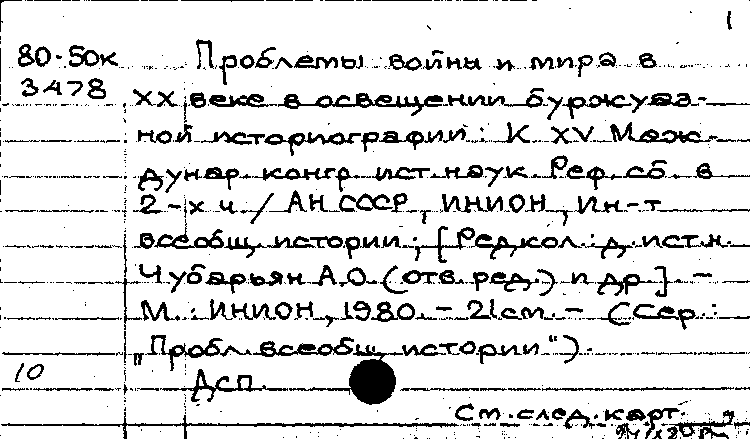 1
80-50к Проблемы войны и мира в
3478 XX веке в освещении буржуаз-
ной историографии: К XV Меж-
дунар. конгр. ист. наук. Реф. сб. в
2-х ч. / АН СССР, ИНИОН, Ин-т
всеобщ. истории; [Редкол.: д. ист. н.
Чубарьян А.О. (отв. ред.) и др.]. –
М.: ИНИОН, 1980. – 21 см. – (Сер.:
"Пробл. всеобщ. истории").
10 Дсп.
См. след. карт.